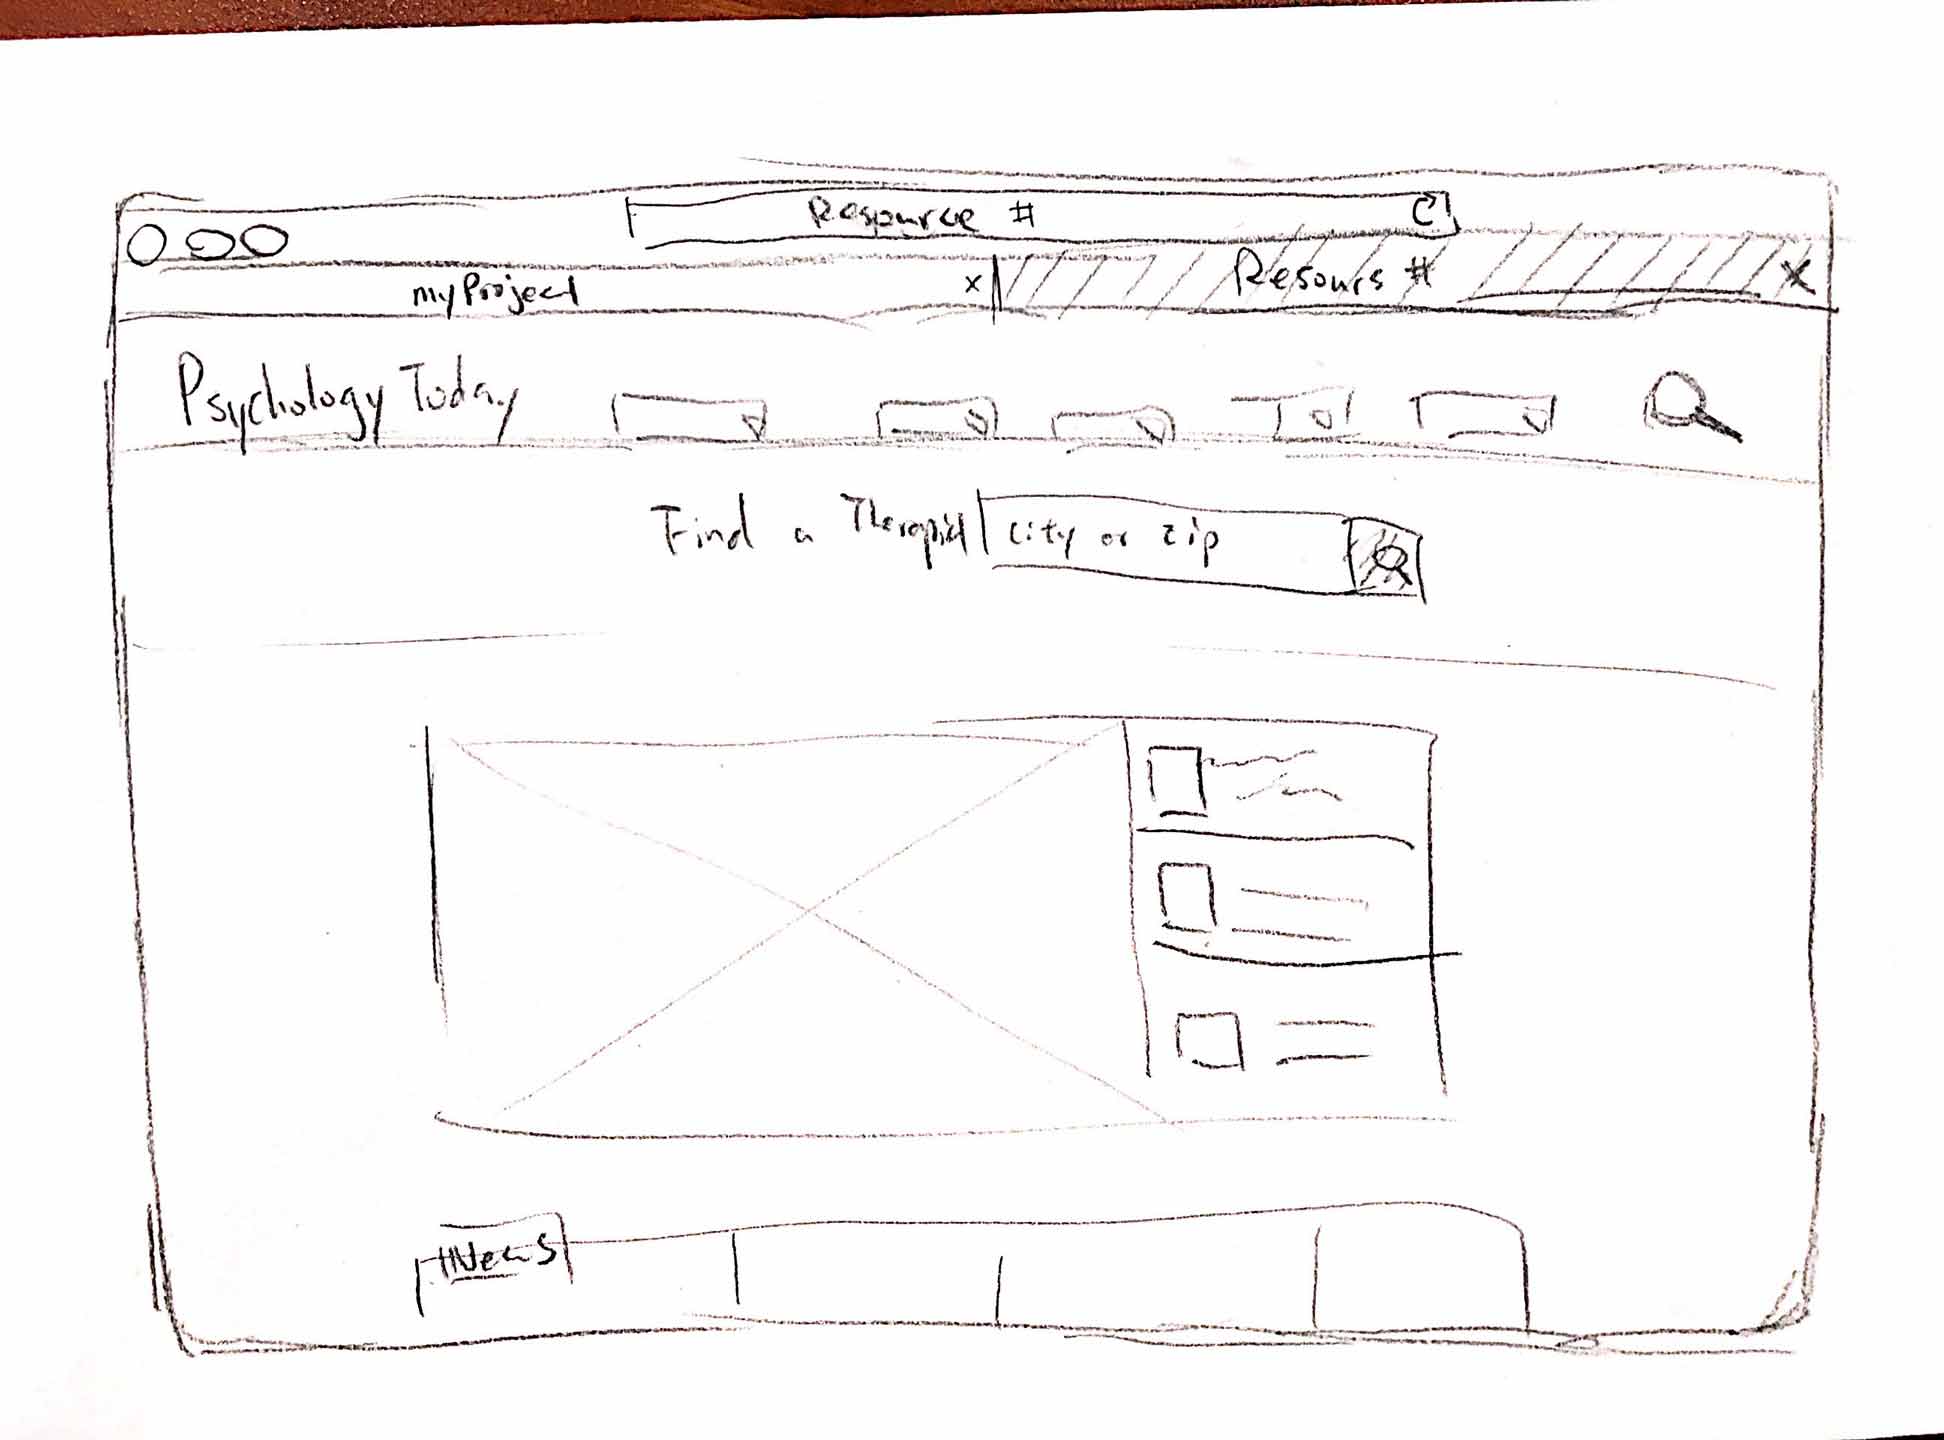 Resource #
myProject x
Resours # x
Psychology Today
Find a Therapist city or zip
News